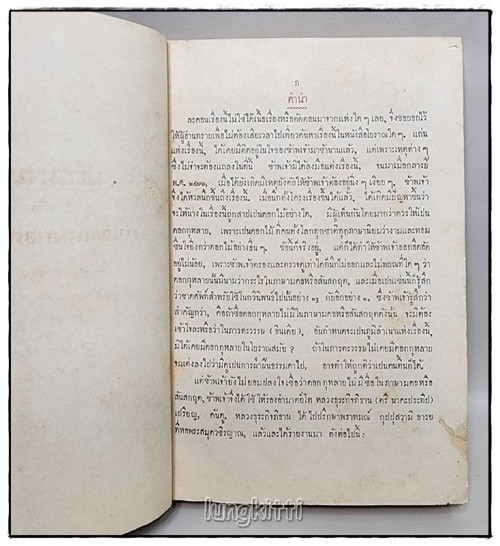 ก
คำนำ
ละคอนเรื่องนี้ไม่ใช่ได้เนื้อเรื่องหรือคัดตอนมาจากแห่งใด ๆ เลย, จึ่งขอบอกไว้
ให้ผู้อ่านทราบเพื่อไม่ต้องเสียเวลาไปเที่ยวค้นหาเรื่องนี้ในหนังสือโบราณใด ๆ. แก่น
แห่งเรื่องนี้, ได้เคยมีติดอยู่ในใจของข้าพเจ้ามาช้านานแล้ว, แต่เพราะเหตุต่าง ๆ
ซึ่งไม่จำจะต้องแถลงในที่นี้ ข้าพเจ้ามิได้ลงมือแต่งเรื่องนี้, จนมาเมื่อกลางปี
พ.ศ. ๒๔๖๖, เมื่อได้บังเกิดมีเหตุบังคับให้ข้าพเจ้าต้องอยู่นิ่ง ๆ เงียบ ๆ, ข้าพเจ้า
จึ่งได้หวลนึกขึ้นถึงเรื่องนี้. เมื่อนึกตั้งโครงเรื่องขึ้นได้แล้ว, ก็ได้เกิดมีปัญหาขึ้นว่า
จะให้นางในเรื่องนี้ถูกสาปเปนดอกไม้อย่างใด. มีผู้เห็นกันโดยมากว่าควรให้เปน
ดอกกุหลาบ, เพราะเปนดอกไม้ที่คนทั้งโลกทุกชาติทุกภาษานิยมว่างามและหอม
ชื่นใจยิ่งกว่าดอกไม้อย่างอื่น ๆ. ข้อนี้ก็จริงอยู่, แต่ก็ได้ทำให้ข้าพเจ้าออกอัดอัด
อยู่ไม่น้อย, เพราะข้าพเจ้าตรองและตรวจดูเท่าใดก็นึกไม่ออกและไม่พบจนที่ใด ๆ ว่า
ดอกกุหลาบนั้นมีนามว่ากระไรในภาษามคธหรือสันสกฤต, และเมื่อเปนเช่นนี้ก็รู้สึก
ว่าขาดศัพท์สำหรับใช้ในกวีนิพนธ์ไปนั้นอย่าง ๑; กับอีกอย่าง ๑, ซึ่งข้าพเจ้ารู้สึกว่า
สำคัญกว่า, คือถ้าชื่อดอกกุหลาบไม่มีในภาษามคธหรือสันสกฤตดังนั้น จะมิต้อง
เข้าใจละหรือว่าในภารตะวรรษ (อินเดีย), อันกำหนดจะเปนภูมิลำเนาแห่งเรื่องนี้,
มิได้เคยมีดอกกุหลาบในโบราณสมัย? ถ้าในภารตะวรรษไม่เคยมีดอกกุหลาบ
จะแต่งลงไปว่ามีดูเปนการฝ่าฝืนธรรมดาไป, อาจทำให้ถูกติว่าเปนคนดื้อก็ได้.
แต่ข้าพเจ้ายังไม่ยอมปลงใจเชื่อว่าดอกกุหลาบไม่มีชื่อในภาษามคธหรือ
สันสกฤต, ข้าพเจ้าจึ่งได้ใช้ให้รองอำมาตย์โท หลวงธุระกิจภิธาน (ตรี นาคะประทีป)
เปรียญ, ค้นดู. หลวงธุระกิจภิธาน ได้ไปปรึกษาพราหมณ์ กุปปุสวามิ อารย
ที่หอพระสมุดวชิรญาณ, แล้วและได้รายงานมา ดังต่อไปนี้:
lungkitti